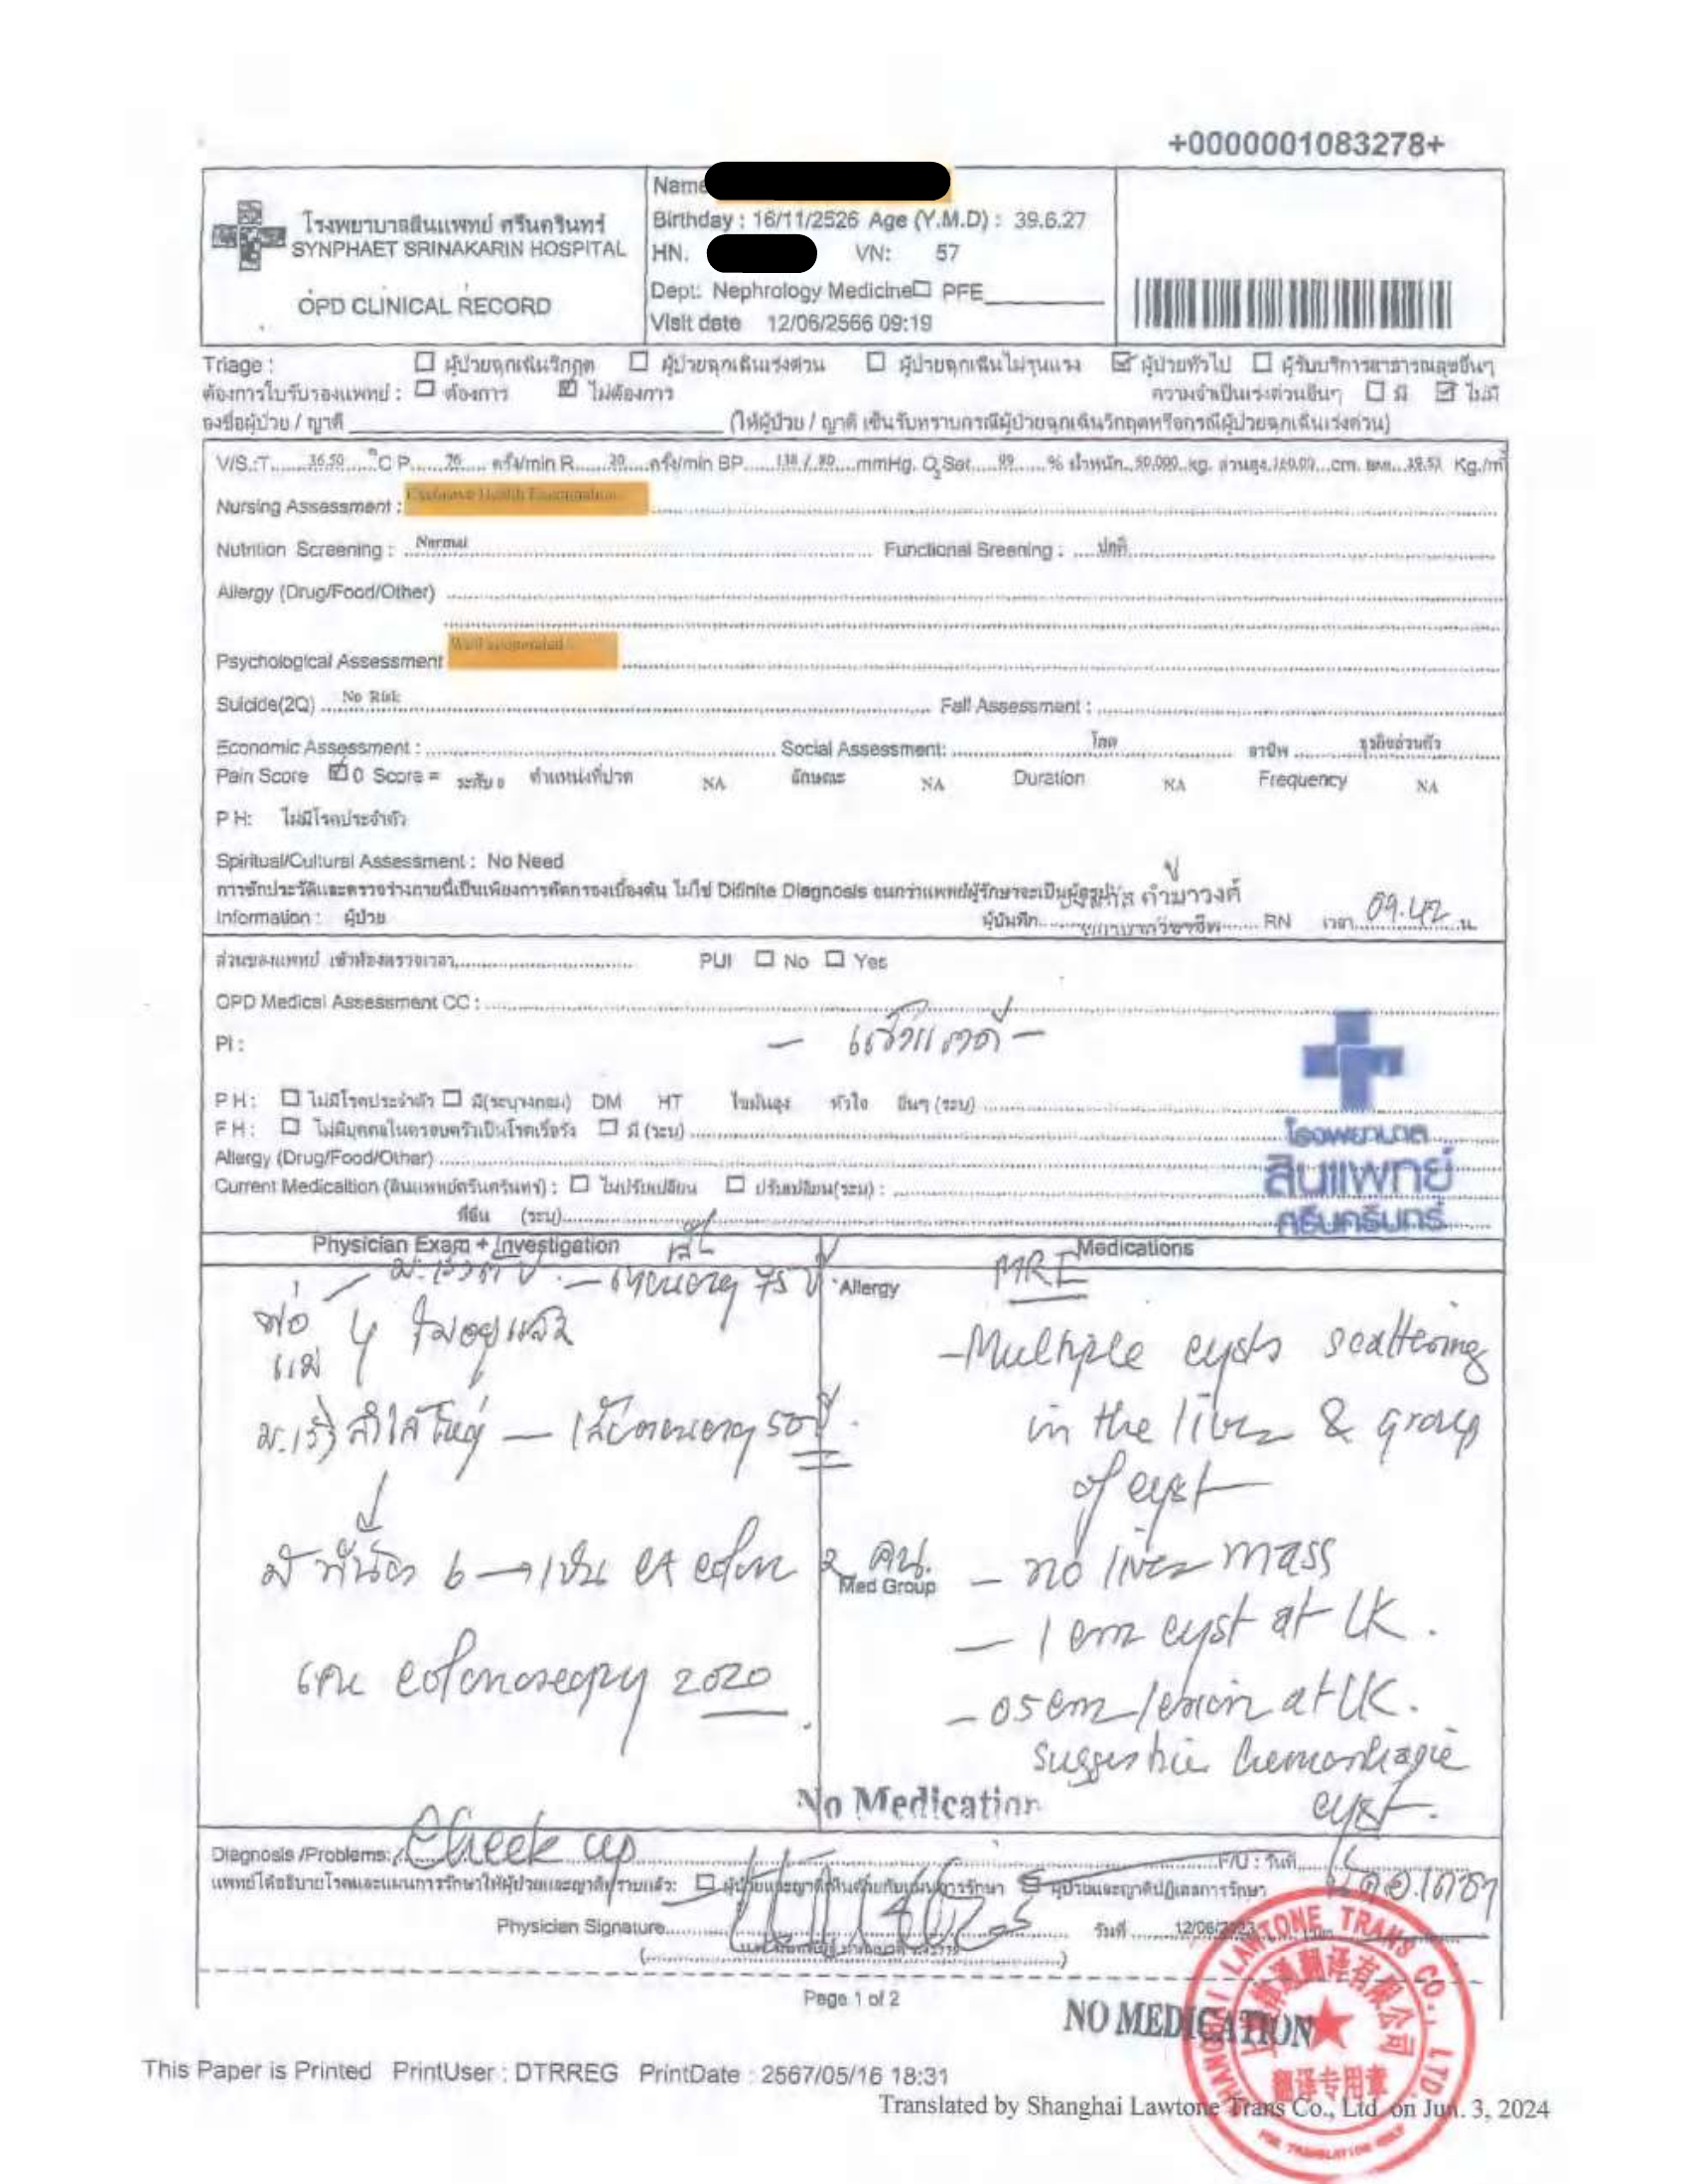 +0000001083278+
โรงพยาบาลสินแพทย์ ศรีนครินทร์
SYNPHAET SRINAKARIN HOSPITAL
OPD CLINICAL RECORD
Name
Birthday : 16/11/2526 Age (Y.M.D) : 39.6.27
HN. VN: 57
Dept: Nephrology Medicine☐ PFE
Visit date 12/06/2566 09:19
Triage : ☐ ผู้ป่วยฉุกเฉินวิกฤต ☐ ผู้ป่วยฉุกเฉินเร่งด่วน ☐ ผู้ป่วยฉุกเฉินไม่รุนแรง ☑ ผู้ป่วยทั่วไป ☐ ผู้รับบริการสาธารณสุขอื่นๆ
ต้องการใบรับรองแพทย์ : ☐ ต้องการ ☑ ไม่ต้องการ ความจำเป็นเร่งด่วนอื่นๆ ☐ มี ☑ ไม่มี
ลงชื่อผู้ป่วย / ญาติ (ให้ผู้ป่วย / ญาติ เซ็นรับทราบกรณีผู้ป่วยฉุกเฉินวิกฤตหรือกรณีผู้ป่วยฉุกเฉินเร่งด่วน)
V/S.:T. 36.50 °C P. 76 ครั้ง/min R. 20 ครั้ง/min BP 138 / 80 mmHg. O2Sat 99 % น้ำหนัก 50.000 kg. ส่วนสูง 160.00 cm. BMI Kg./m
Nursing Assessment : Exclusive Health Examination
Nutrition Screening : Normal Functional Sreening : ปกติ
Allergy (Drug/Food/Other)
Psychological Assessment Well cooperated
Suicide(2Q) No Risk Fall Assessment :
Economic Assessment : Social Assessment: โสด อาชีพ ธุรกิจส่วนตัว
Pain Score ☑ 0 Score = ระดับ 0 ตำแหน่งที่ปวด NA ลักษณะ NA Duration NA Frequency NA
P H: ไม่มีโรคประจำตัว
Spiritual/Cultural Assessment : No Need
การซักประวัติและตรวจร่างกายนี้เป็นเพียงการคัดกรองเบื้องต้น ไม่ใช่ Difinite Diagnosis จนกว่าแพทย์ผู้รักษาจะเป็นผู้สรุป คำมาวงศ์
Information : ผู้ป่วย ผู้บันทึก พยาบาลวิชาชีพ RN เวลา 09.42 น.
ส่วนของแพทย์ เข้าห้องตรวจเวลา PUI ☐ No ☐ Yes
OPD Medical Assessment CC :
PI : – แข็งแรงดี –
P H: ☐ ไม่มีโรคประจำตัว ☐ มี(ระบุ/วงกลม) DM HT ไขมันสูง หัวใจ อื่นๆ (ระบุ)
F H: ☐ ไม่มีบุคคลในครอบครัวเป็นโรคเรื้อรัง ☐ มี (ระบุ)
Allergy (Drug/Food/Other)
Current Medicaltion (สินแพทย์ศรีนครินทร์) : ☐ ไม่ปรับเปลี่ยน ☐ ปรับเปลี่ยน(ระบุ) :
ที่อื่น (ระบุ)
โรงพยาบาล
สินแพทย์
ศรีนครินทร์
Physician Exam + Investigation
พ่อ – ม.เร็งตับ – 75 ปี
แม่ ไม่อยู่แล้ว
ม.เร็งลำไส้ใหญ่ – 50 ปี
มีพี่น้อง 6 → เป็น CA colon 2 คน.
เคย colonoscopy 2020
Medications
Allergy MRI
- Multiple cysts scattering
in the liver & group
of cyst
Med Group
- no liver mass
- 1 cm cyst at LK.
- 05 cm lesion at LK.
suggestive hemorrhagic
cyst.
No Medication
Diagnosis /Problems: Check up F/U : วันที่
แพทย์ได้อธิบายโรคและแผนการรักษาให้ผู้ป่วยและญาติทราบแล้ว: ☐ ผู้ป่วยและญาติเห็นด้วยกับแผนการรักษา ☐ ผู้ป่วยและญาติปฏิเสธการรักษา
Physician Signature วันที่ 12/06/2023
Page 1 of 2
NO MEDICATION
SHANGHAI LAWTONE TRANS CO., LTD.
翻译有限公司
翻译专用章
FOR TRANSLATION ONLY
This Paper is Printed PrintUser : DTRREG PrintDate : 2567/05/16 18:31
Translated by Shanghai Lawtone Trans Co., Ltd. on Jun. 3, 2024